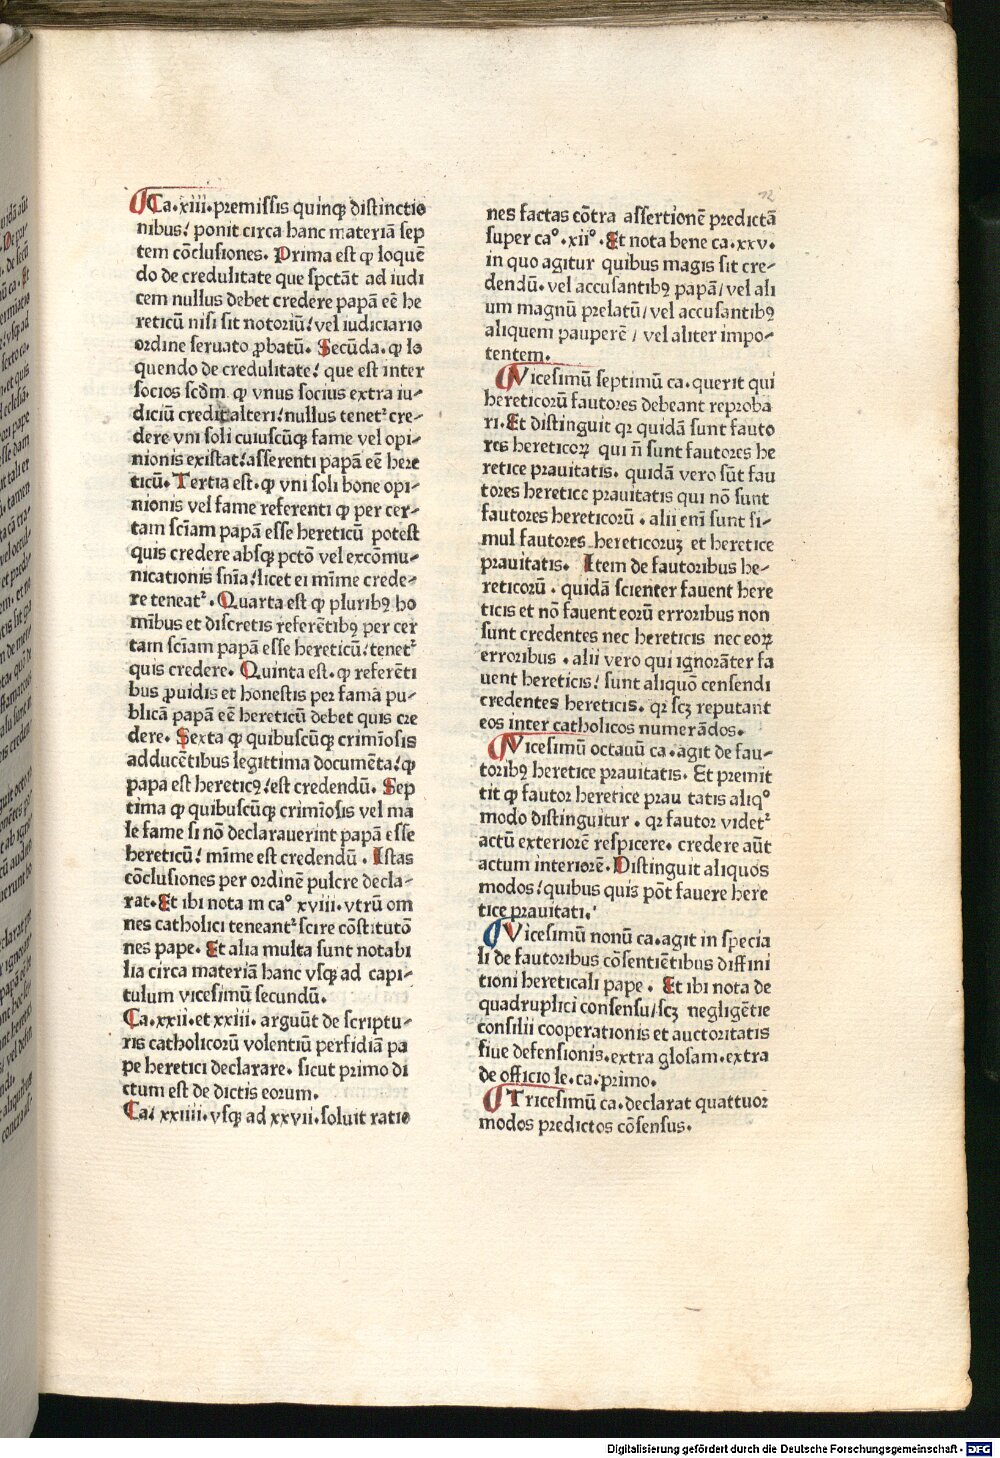 Ca.xiii.premissis quinqꝫ distinctio
nibus/ ponit circa hanc materiā sep
tem cōclusiones. Prima est ꝙ loquē
do de credulitate que spctāt ad iudi
cem nullus debet credere papā eē he
reticū nisi sit notoriū/ vel iudiciario
ordine seruato ꝓbatū. Secūda. ꝙ lo
quendo de credulitate/ que est inter
socios scd̄m ꝙ vnus socius extra iu⸗
diciū credit alteri/ nullus tenetᷣ cre⸗
dere vni soli cuiuscūqꝫ fame vel opi⸗
nionis existat/ asserenti papā eē here
ticū. Tertia est. ꝙ vni soli bone opi⸗
nionis vel fame referenti ꝙ per cer⸗
tam sciam̄ papā esse hereticū potest
quis credere absqꝫ pctō vel excōmu⸗
nicationis sn̄ia/ licet ei mīme crede⸗
re teneatᷣ. Quarta est ꝙ pluribꝰ ho
mībus et discretis referētibꝰ per cer
tam sciam̄ papā esse hereticū/ tenetᷣ
quis credere. Quinta est. ꝙ referēti
bus ꝓuidis et honestis per famā pu⸗
blicā papā eē hereticū debet quis cre
dere. Sexta ꝙ quibuscūqꝫ crimīosis
adducētibus legittima documēta/ ꝙ
papa est hereticꝰ/ est credendū. Sep
tima ꝙ quibuscūqꝫ crimīosis vel ma
le fame si nō declarauerint papā esse
hereticū/ mīme est credendū. Istas
cōclusiones per ordinē pulcre decla⸗
rat. Et ibi nota in ca° xviii. vtrū om
nes catholici teneantᷣ scire cōstitutō
nes pape. Et alia multa sunt notabi
lia circa materiā hanc vsqꝫ ad capi⸗
tulum vicesimū secundū.
Ca.xxii.et xxiii. arguūt de scriptu⸗
ris catholicorū volentiū perfidiā pa
pe heretici declarare. sicut primo di
ctum est de dictis eorum.
Ca/ xxiiii.vsqꝫ ad xxvii.soluit ratio
12
nes factas cōtra assertionē predictā
super ca°.xii°. Et nota bene ca.xxv.
in quo agitur quibus magis sit cre⸗
dendū. vel accusantibꝰ papā/ vel ali
um magnū prelatū/ vel accusantibꝰ
aliquem pauperē / vel aliter impo⸗
tentem.
Vicesimū septimū ca.querit qui
hereticorū fautores debeant reproba
ri. Et distinguit qꝛ quidā sunt fauto
res hereticoꝝ qui n̄ sunt fautores he
retice prauitatis. quidā vero sūt fau
tores heretice prauitatis qui nō sunt
fautores hereticorū . alii eni̅ sunt si⸗
mul fautores hereticoruꝫ et heretice
prauitatis. Item de fautoribus he⸗
reticorū . quidā scienter fauent here
ticis et nō fauent eorū erroribus non
sunt credentes nec hereticis nec eoꝝ
erroribus . alii vero qui ignorāter fa
uent hereticis/ sunt aliquō censendi
credentes hereticis. qꝛ scꝫ reputant
eos inter catholicos numerādos.
Vicesimū octauū ca.agit de fau⸗
toribꝰ heretice prauitatis. Et premit
tit ꝙ fautor heretice prau tatis aliq°
modo distinguitur . qꝛ fautor videtᷣ
actū exteriorē respicere. credere aūt
actum interiorē. Distinguit aliquos
modos/ quibus quis pōt fauere here
tice prauitati.
Vicesimū nonū ca.agit in specia
li de fautoribus cōsentiētibus diffini
tioni hereticali pape . Et ibi nota de
quadruplici consensu/ scꝫ negligētie
consilii cooperationis et auctoritatis
siue defensionis.extra glosam.extra
de officio le.ca.primo.
Tricesimū ca.declarat quattuor
modos predictos cōsensus.
Digitalisierung gefördert durch die Deutsche Forschungsgemeinschaft - DFG